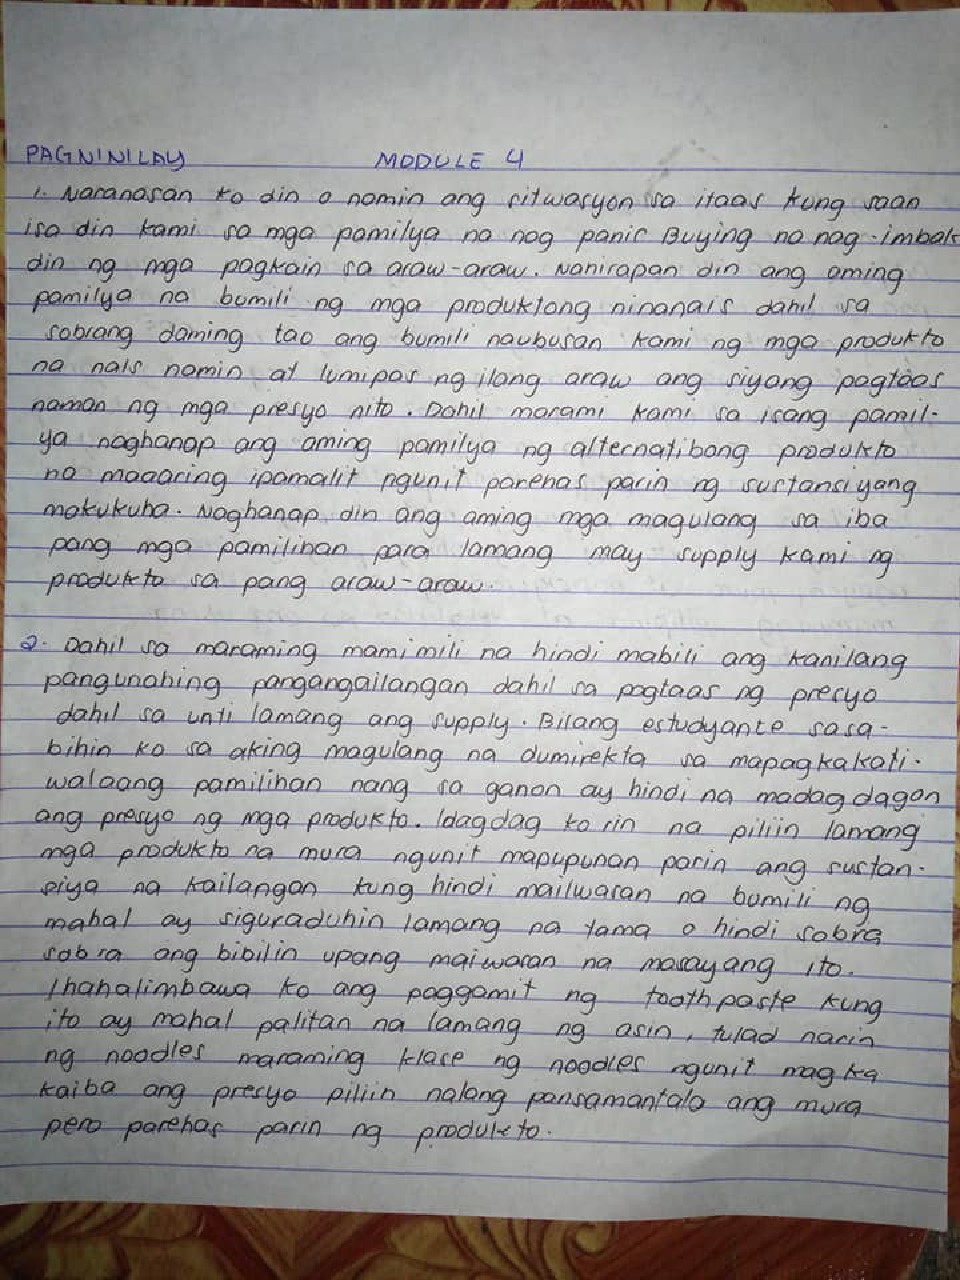 PAGNINILAY MODULE 4
1. Naranasan ko din o namin ang sitwasyon sa itaas kung saan
isa din kami sa mga pamilya na nag panic Buying na nag-imbak
din ng mga pagkain sa araw-araw. Nanirapan din ang aming
pamilya na bumili ng mga produktong ninanais dahil sa
sobrang daming tao ang bumili naubusan kami ng mga produkto
na nais namin at lumipas ng ilang araw ang siyang pagtaas
naman ng mga presyo nito. Dahil marami kami sa isang pamil-
ya naghanap ang aming pamilya ng alternatibong produkto
na maaaring ipamalit ngunit parehas parin ng sustansiyang
makukuha. Naghanap din ang aming mga magulang sa iba
pang mga pamilihan para lamang may supply kami ng
produkto sa pang araw-araw.
2. Dahil sa maraming mamimili na hindi mabili ang kanilang
pangunahing pangangailangan dahil sa pagtaas ng presyo
dahil sa unti lamang ang supply. Bilang estudyante sasa-
bihin ko sa aking magulang na dumirekta sa mapagkakati-
walaang pamilihan nang sa ganon ay hindi na madagdagan
ang presyo ng mga produkto. Idagdag ko rin na piliin lamang
mga produkto na mura ngunit mapupunan parin ang sustan-
siya na kailangan kung hindi mailwasan na bumili ng
mahal ay siguraduhin lamang na tama o hindi sobra
sobra ang bibilin upang maiwasan na masayang ito.
Ihahalimbawa ko ang paggamit ng toothpaste kung
ito ay mahal palitan na lamang ng asin, tulad narin
ng noodles maraming klase ng noodles ngunit magka
kaiba ang presyo piliin nalang pansamantala ang mura
pero parehas parin ng produkto.